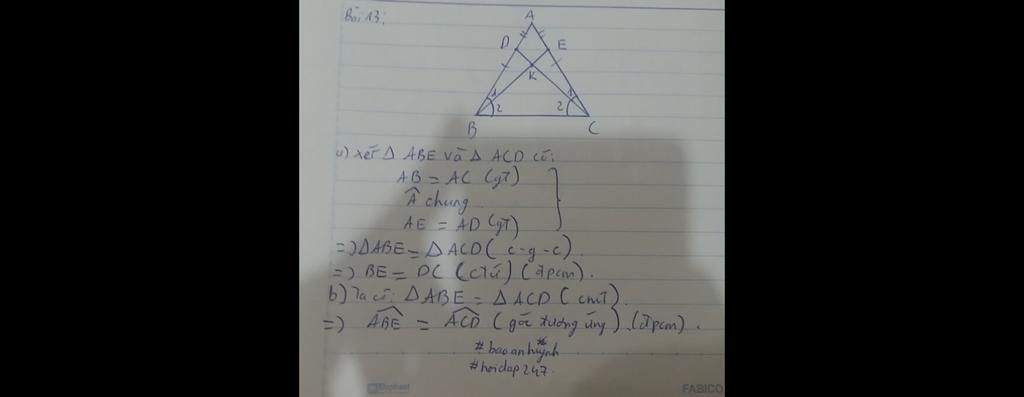 Bài 13:
A
D E
K
1 1
2 2
B C
a) xét Δ ABE và Δ ACD có:
AB = AC (gT)
Â chung
AE = AD (gT)
=> ΔABE = Δ ACD ( c-g-c)
=> BE = DC (cTứ) (đpcm).
b) Ta có: Δ ABE = Δ ACD ( cmT)
=> ABE = ACD (góc tương ứng). (đpcm).
#baoanhuynh
#hoidap247.
Elephant
FABICO